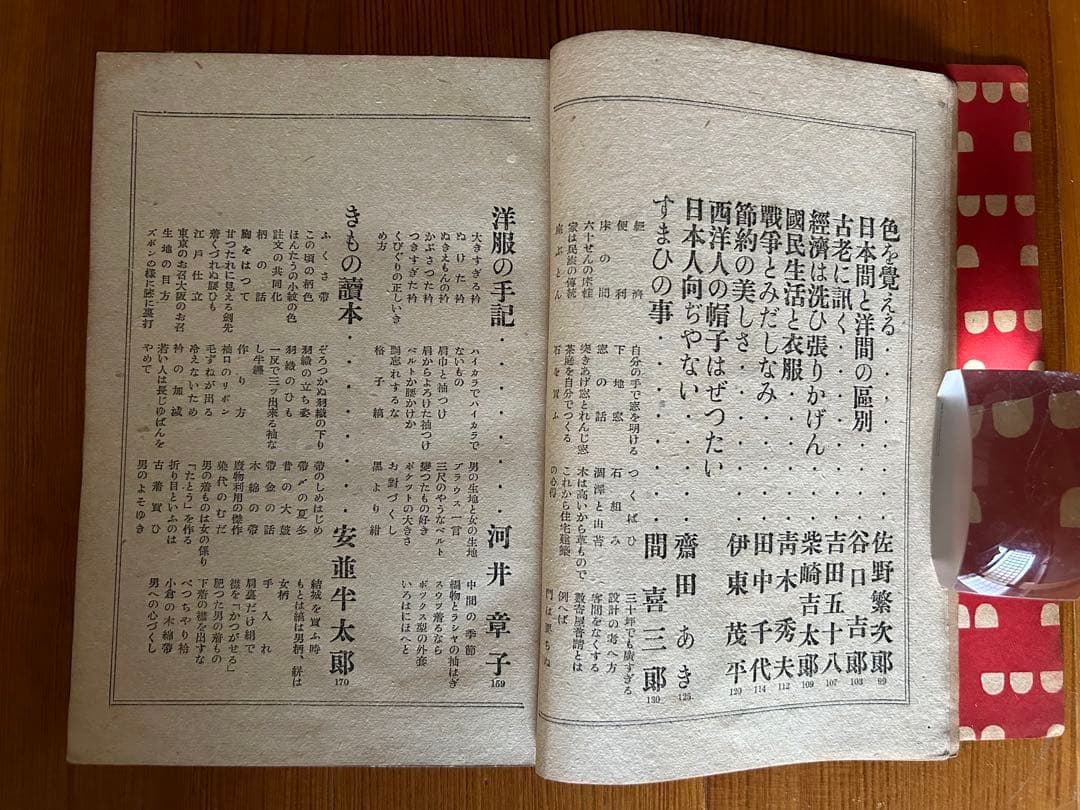 色を覺える・・・・・佐野繁次郎 99
日本間と洋間の區別・・・谷口吉郎 103
古老に訊く・・・・・吉田五十八 107
經濟は洗ひ張りかげん・・柴崎吉太郎 109
國民生活と衣服・・・・靑木秀夫 112
戰爭とみだしなみ・・・田中千代 114
節約の美しさ・・・・・伊東茂平 120
西洋人の帽子はぜつたい
日本人向ぢやない・・・・齋田あき 125
すまひの事・・・・・間喜三郞 130
經濟
便利
床の間
六十ぜんの床柱
家は民族の傳統
自分の手で窓を明ける
下地窓
窓の話
突きあげ窓とれんじ窓
茶庭を自分でつくる
石を買ふ
つくばひ
石組み
凅澤と山苔
木は高いから草もので
これから住宅建築
の心得
三十坪でも廣すぎる
設計の考へ方
客間をなくする
數寄屋普請とは
例へば
洋服の手記・・・・・河井章子 159
大きすぎる衿
ぬけた衿
ぬきえもんの衿
かぶさつた衿
つきすぎた衿
くびぐりの正しいき
め方
ハイカラでハイカラで
ないもの
肩巾と袖つけ
肩からよろけた袖つけ
ベルトか腰かけか
胴忘れするな
格子縞
男の生地と女の生地
ブラウス一言
三尺のやうなベルト
變つたもの好き
ポケツトの大きさ
お對づくし
黑より紺
中間の季節
編物とラシヤの袖はぎ
スウツ着るなら
ボツクス型の外套
いろはにほへと
きもの讀本・・・・・安並半太郞 170
ふくさ帶
この頃の柄色
ほんたうの小紋の色
註文の共同化
柄の話
胸をはつて
甘つたれに見える劍先
着くづれぬ腰ひも
江戶仕立
東京のお召大阪のお召
生地の目方
ズボンの樣に膝に裏打
ぞろつかぬ羽織の下り
羽織の立ち姿
羽織のひも
一反で三ツ出來る袖な
し半纏
作り方
袖口のリボン
毛ずねが出る
冷えないため
衿の加減
若い人は長じゆばんを
やめて
帶のしめはじめ
帶〆の夏冬
昔の大鼓
帶金の話
木綿の帶
廢物利用の傑作
染代のむだ
男の着ものは女の係り
「たとう」を作る
折り目といふのは
古着買ひ
男のよそゆき
結城を買ふ時
もとは縞は男柄、絣は
女柄
手入れ
肩裏だけ絹で
襟を「かつがせる」
肥つた男の着もの
下着の襟を出すな
べつちやり袷
小倉の木綿帶
男への心づくし